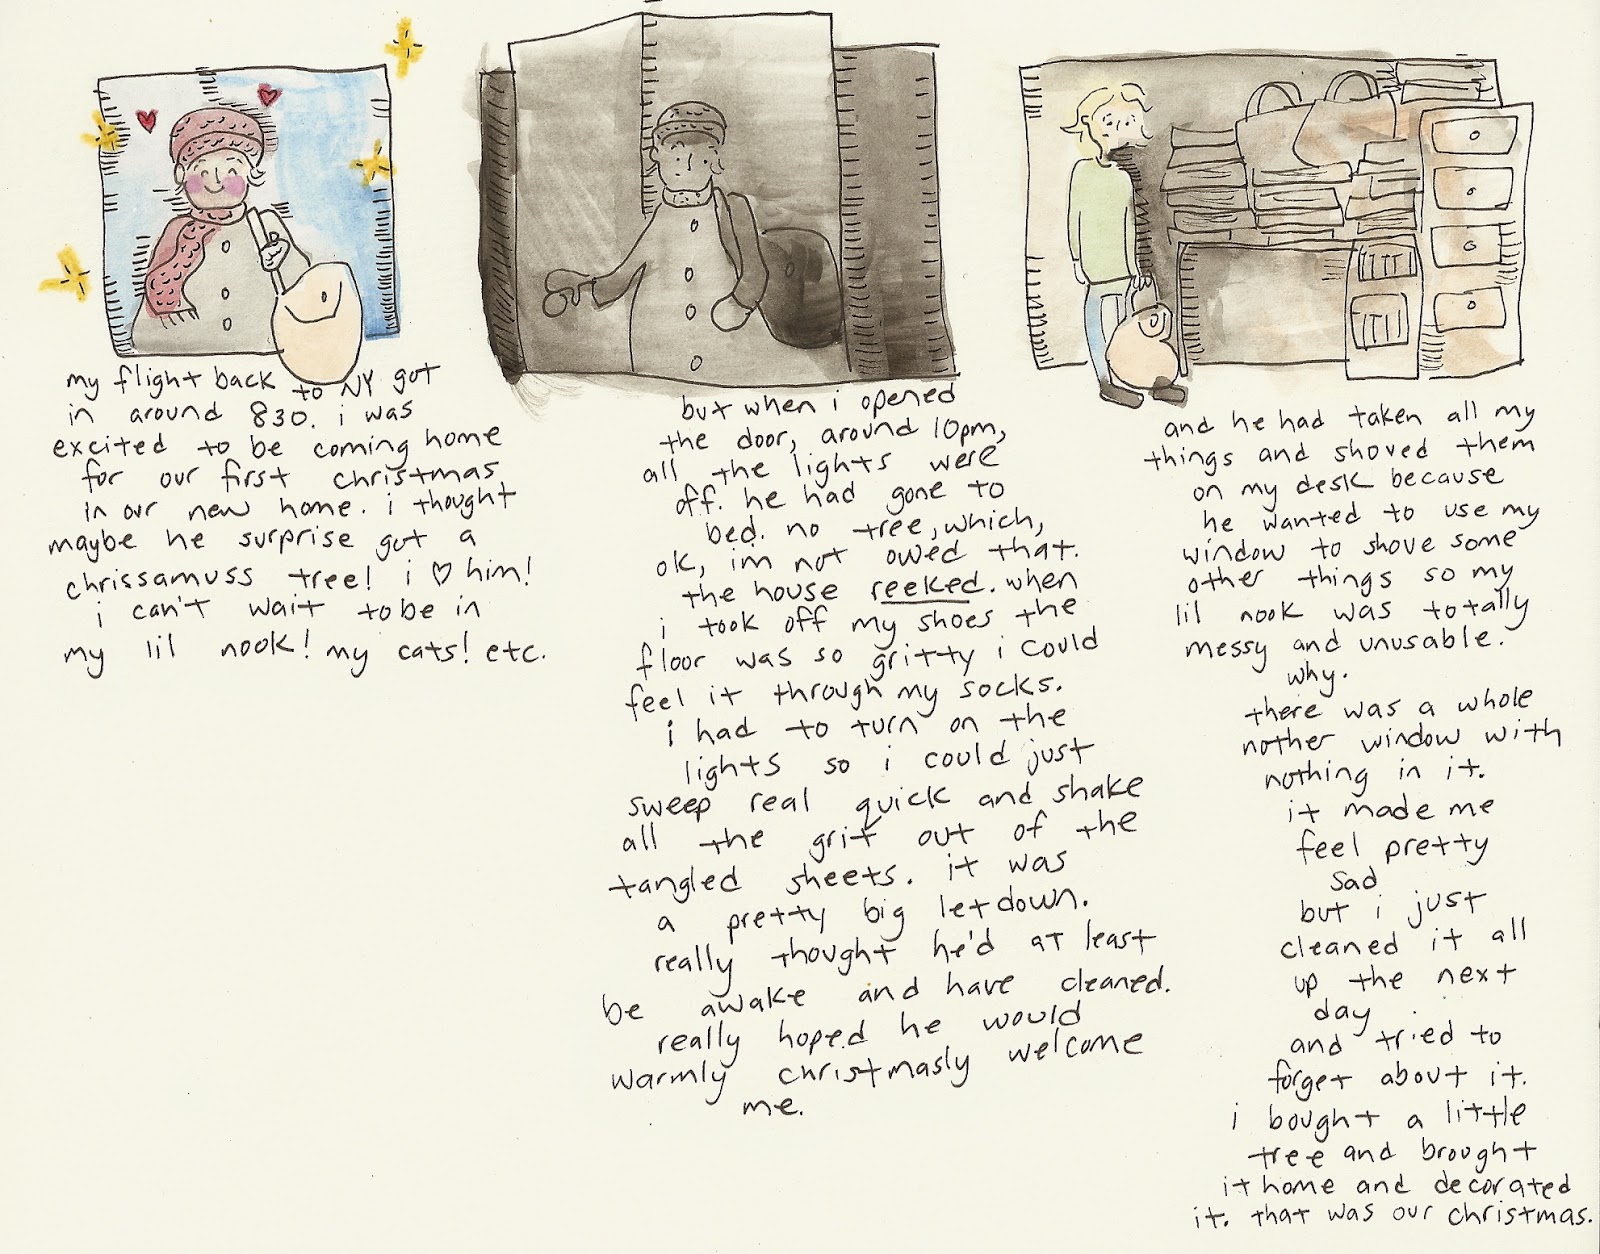 my flight back to NY got
in around 830. i was
excited to be coming home
for our first christmas
in our new home. i thought
maybe he surprise got a
chrissamuss tree! i ♡ him!
i can't wait to be in
my lil nook! my cats! etc.
but when i opened
the door, around 10pm,
all the lights were
off. he had gone to
bed. no tree, which,
ok, im not owed that.
the house reeked. when
i took off my shoes the
floor was so gritty i could
feel it through my socks.
i had to turn on the
lights so i could just
sweep real quick and shake
all the grit out of the
tangled sheets. it was
a pretty big letdown.
really thought he'd at least
be awake and have cleaned.
really hoped he would
warmly christmasly welcome
me.
and he had taken all my
things and shoved them
on my desk because
he wanted to use my
window to shove some
other things so my
lil nook was totally
messy and unusable.
why.
there was a whole
nother window with
nothing in it.
it made me
feel pretty
sad
but i just
cleaned it all
up the next
day
and tried to
forget about it.
i bought a little
tree and brought
it home and decorated
it. that was our christmas.